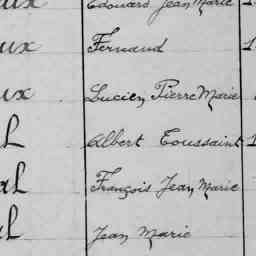 aux Edouard Jean Marie 1
ux Fernand 1
ux Lucien Pierre Marie
l Albert Toussaint 1
al François Jean Marie
al Jean Marie